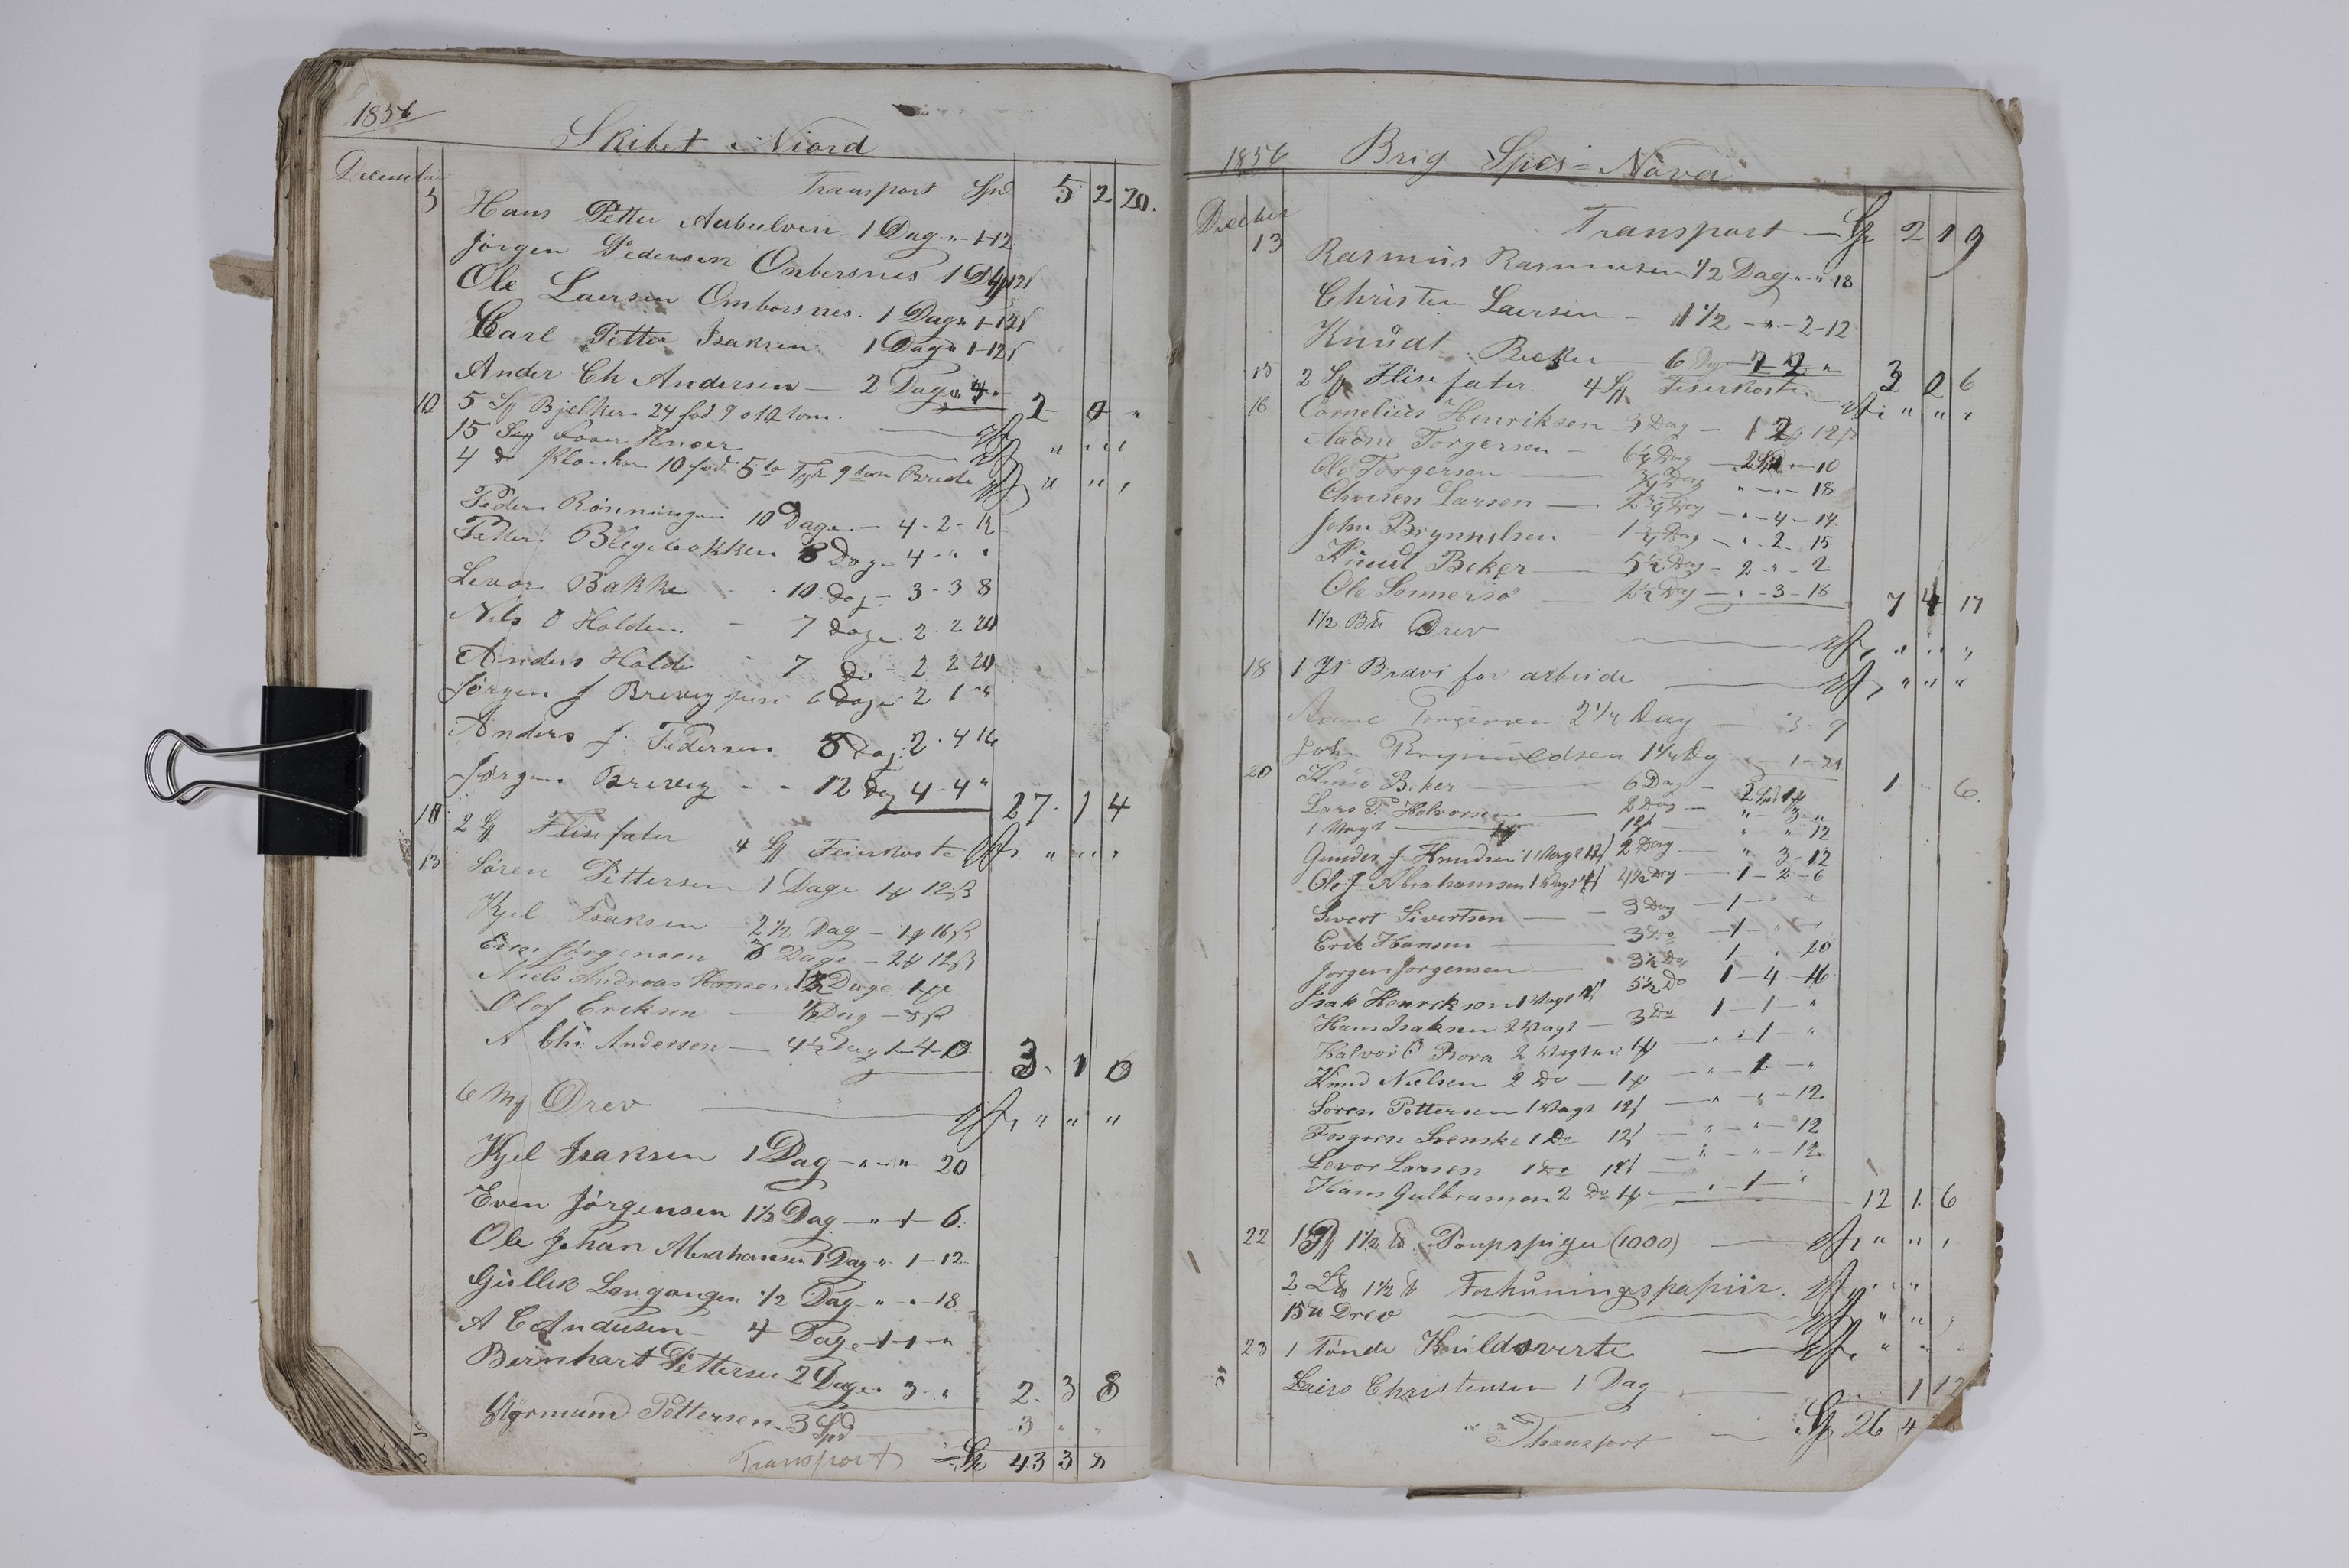 1856
Skibet Niord
December
Transport Spd 5 2 20.
3 Hans Petter Aabulven 1 Dag " 1-12
Jørgen Pedersen Ombersnes 1 D
Ole Laersen Omborsnes. 1 Dag " 1-12
Carl Petter Isaksen 1 Dag " 1-12
Ander Ch Andersen — 2 Dag " 4 " 2 4 "
10 5 St Bjelker 24 fod 9 a 10 tom. " " "
15 Knoer " " "
4 do Planker 10 fod 5 to Tyk 9 tom Brede " " "
Peder Rønningen 10 Dage — 4-2-12
Petter Blegebakken 8 Dage 4 - " "
Levor Bakke - 10 Dag - 3-3 8
Nils O Holden - 7 Dage 2-2 20
Anders Holde 7 Do - 2 2 20
Jørgen J Brevig 6 Dage 2 1 "
Anders J. Pedersen 8 Dag: 2-4 16
Jørgen Brevig - - 12 Dag 4-4 " 27-1 4
2 St Flisefater 4 St Feierkoste " " "
13 Søren Pettersen 1 Dage 1 12
Kjel Isaksen 2 1/2 Dag — 1 16
Even Jørgensen Dage — 2 12
Niels Andreas Dage 1
Olof Eriksen — 1/2 Dag —
A Chr Andersen — 4 1/2 Dag 1-4-0 3-1 6
6 Drev " " "
Kjel Isaksen 1 Dag — " — " 20
Even Jørgensen 1 1/2 Dag — " 1-6
Ole Johan Abrahamsen 1 Dag " 1-12
Gullik Langangen 1/2 Dag " " 18
A C Andersen — 4 Dage 1-1-"
Bernhart Pettersen 2 Dage 3-" 2-3 8
Pettersen 3 Spd 3 " "
Transport Sp 43 3 2
1856 Brig Spes=Nova
December
Transport — Sp 2 1 9
13 Rasmus Rasmusen 1/2 Dag " " 18
Christen Laersen — 1 1/2 — " - 2-12
Knudt Beker 6 Dage 2 2 " 3 0 6
15 2 St Flisefater. 4 St Feierkoste " " "
16 Cornelius Henriksen 3 Dag — 1 2 12
Aadne Torgersen — 6 1/4 Dag — 2 — 10
Ole Torgersen — 3/4 Dag " — " — 18
Larsen — 2 3/4 Dag — " - 4 - 14
John Brynnilsen — 1 3/4 Dag — " 2 - 15
Knudt Beker — 5 1/2 Dag — 2 - " - 2
Ole Sønnersø — 2 1/2 Dag — " - 3 - 18 7 4 17
1 1/2 Drev " " "
18 1 for arbeide " " "
Aane Torgersen 2 1/4 Dag — 3 9
John Brynnildsen 1 1/4 Dg — 1-21 1 6
20 Knud Beker — 6 Dag — 2
Lars P. Halvorsen — 2 Dag — " 3 "
1 Vagt — " " 12
Gunder J. Knudsen 1 Vagt 2 Dag — " 3-12
Ole J. Abrahamsen 1 Vagt 4 1/2 Dag — 1-2-6
Sivert Sivertsen — 3 Dag — 1 - " "
Erik Hansen — 3 Do — 1 - " "
Jørgen Jørgensen — 3 1/2 Do 1 - " 20
Isak Henriksen 1 Vagt 5 1/2 Do 1-4-16
Hans Isaksen 2 Vagt — 3 Do 1-1-"
Halvor Rora 2 Vagter 1 — " - 1 - "
Knud Nielsen 2 Do — 1 — " - 1 - "
Søren Pettersen 1 Vagt 12 — " - " - 12
Svenske 1 Do 12 — " - " - 12
Levor Larsen 1 Do 12 — " - " - 12
Hans Gulbransen 2 Do 1 — " - 1 - " 12 1 6
22 1 1/2 Pompspiger (1000) — " " "
2 1 1/2 Forhuningspapiir. " " "
15 Drev " " "
23 1 Tønde Kuldsverte — " " "
Lairs Christensen 1 Dag 1 12
Transport — Sp 26 4